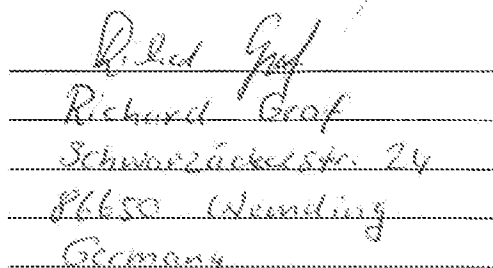 Richard Graf
Richard Graf
Schwarzäckerstr. 24
86650 Wemding
Germany